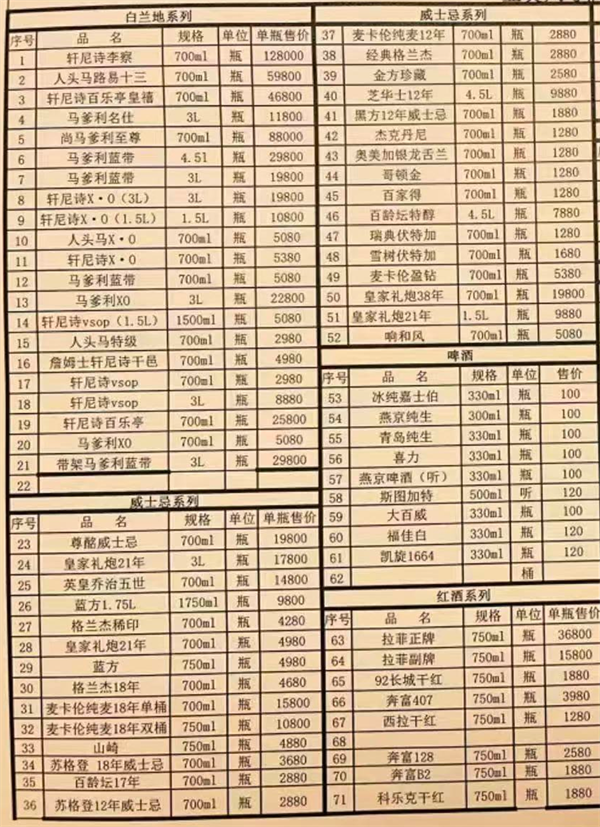 白兰地系列
序号 品 名 规格 单位 单瓶售价
1 轩尼诗李察 700ml 瓶 128000
2 人头马路易十三 700ml 瓶 59800
3 轩尼诗百乐亭皇禧 700ml 瓶 46800
4 马爹利名仕 3L 瓶 11800
5 尚马爹利至尊 700ml 瓶 88000
6 马爹利蓝带 4.5l 瓶 29800
7 马爹利蓝带 3L 瓶 19800
8 轩尼诗X·O(3L) 3L 瓶 19800
9 轩尼诗X·O(1.5L) 1.5L 瓶 10800
10 人头马X·O 700ml 瓶 5080
11 轩尼诗X·O 700ml 瓶 5380
12 马爹利蓝带 700ml 瓶 5080
13 马爹利XO 3L 瓶 22800
14 轩尼诗vsop(1.5L) 1500ml 瓶 5080
15 人头马特级 700ml 瓶 2980
16 詹姆士轩尼诗干邑 700ml 瓶 4980
17 轩尼诗vsop 700ml 瓶 2980
18 轩尼诗vsop 3L 瓶 8880
19 轩尼诗百乐亭 700ml 瓶 25800
20 马爹利XO 700ml 瓶 5080
21 带架马爹利蓝带 3L 瓶 29800
22
威士忌系列
序号 品 名 规格 单位 单瓶售价
23 尊酩威士忌 700ml 瓶 19800
24 皇家礼炮21年 3L 瓶 17800
25 英皇乔治五世 700ml 瓶 14800
26 蓝方1.75L 1750ml 瓶 9800
27 格兰杰稀印 700ml 瓶 4280
28 皇家礼炮21年 700ml 瓶 4980
29 蓝方 750ml 瓶 4980
30 格兰杰18年 700ml 瓶 4680
31 麦卡伦纯麦18年单桶 700ml 瓶 15800
32 麦卡伦纯麦18年双桶 750ml 瓶 10800
33 山崎 750ml 瓶 4880
34 苏格登 18年威士忌 700ml 瓶 3680
35 百龄坛17年 700ml 瓶 2880
36 苏格登12年威士忌 700ml 瓶 2880
威士忌系列
37 麦卡伦纯麦12年 700ml 瓶 2880
38 经典格兰杰 700ml 瓶 2880
39 金方珍藏 700ml 瓶 2580
40 芝华士12年 4.5L 瓶 9880
41 黑方12年威士忌 700ml 瓶 1880
42 杰克丹尼 700ml 瓶 1280
43 奥美加银龙舌兰 700ml 瓶 1280
44 哥顿金 700ml 瓶 1280
45 百家得 700ml 瓶 1280
46 百龄坛特醇 4.5L 瓶 7880
47 瑞典伏特加 700ml 瓶 1280
48 雪树伏特加 700ml 瓶 1680
49 麦卡伦盈钻 700ml 瓶 5380
50 皇家礼炮38年 700ml 瓶 19800
51 皇家礼炮21年 1.5L 瓶 9880
52 响和风 700ml 瓶 5080
啤酒
序号 品 名 规格 单位 售价
53 冰纯嘉士伯 330ml 瓶 100
54 燕京纯生 300ml 瓶 100
55 青岛纯生 330ml 瓶 100
56 喜力 330ml 瓶 100
57 燕京啤酒(听) 330ml 瓶 100
58 斯图加特 500ml 听 120
59 大百威 330ml 瓶 120
60 福佳白 330ml 瓶 120
61 凯旋1664 330ml 瓶 120
62 桶
红酒系列
序号 品 名 规格 单位 单瓶售价
63 拉菲正牌 750ml 瓶 36800
64 拉菲副牌 750ml 瓶 15800
65 92长城干红 750ml 瓶 1880
66 奔富407 750ml 瓶 3980
67 西拉干红 750ml 瓶 1280
68
69 奔富128 750ml 瓶 2580
70 奔富B2 750ml 瓶 1880
71 科乐克干红 750ml 瓶 1880